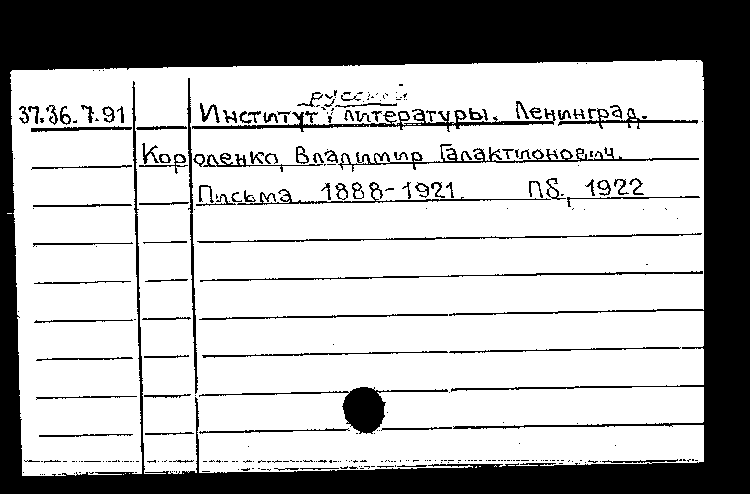 русской
37.36.7.91 Институт литературы. Ленинград.
Короленко, Владимир Галактионович.
Письма. 1888-1921. Пб., 1922